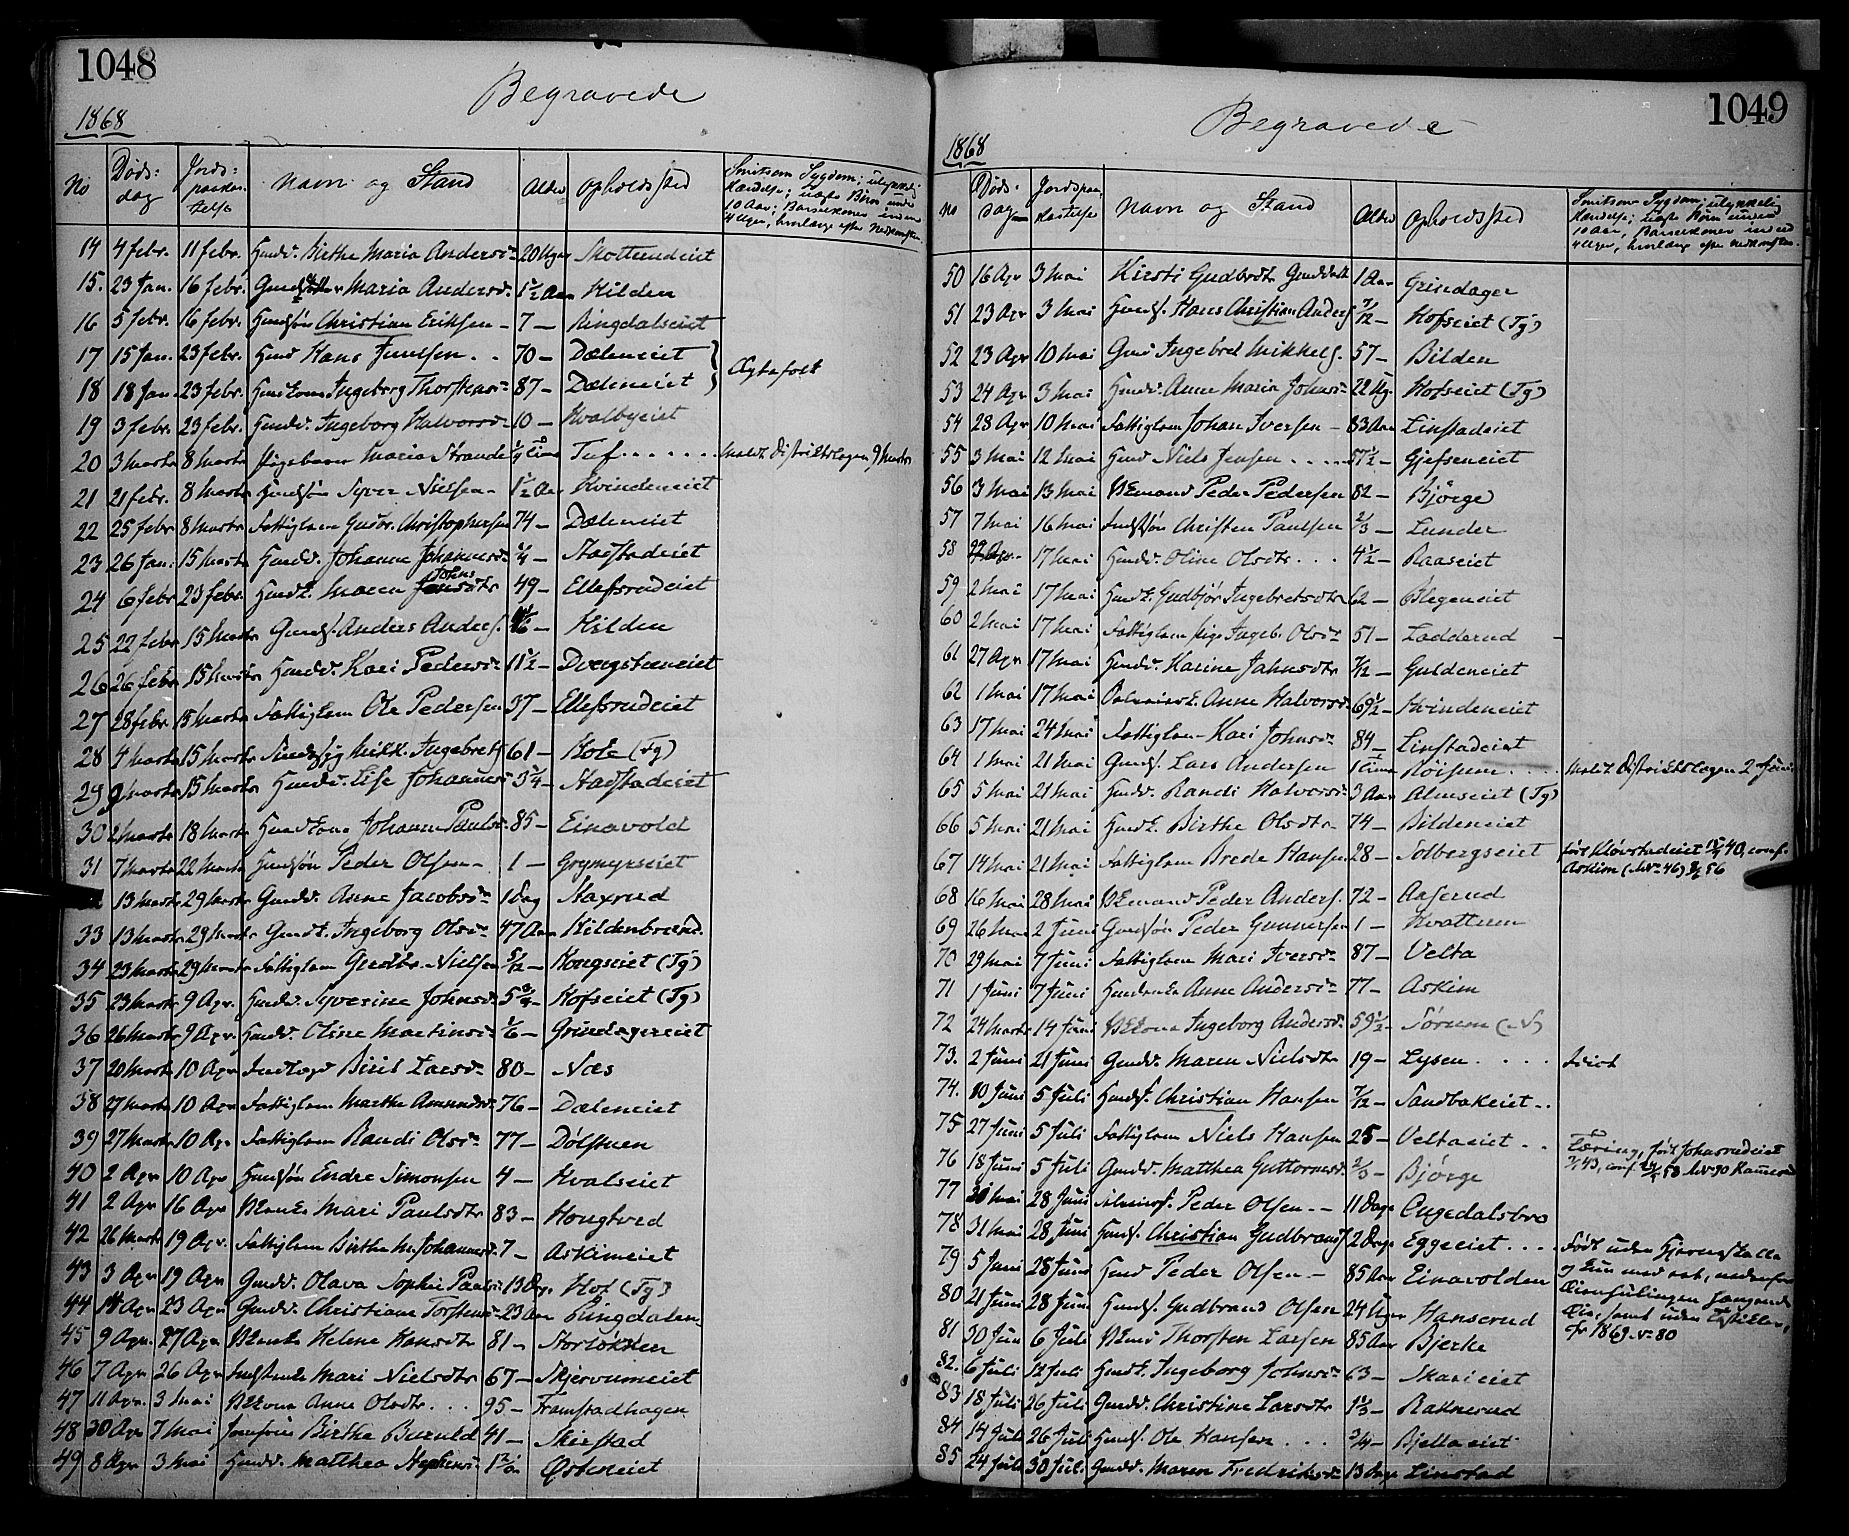 1048
Begravede
1868
No Døds: dag Jords: paakas telse Navn og Stand Alder Opholdssted Smitsom Sygdom; ulykkel: Hændelse; uægte Børn under 10 Aar; Barselkoner inden 4 Uger, hvorlænge efter Nedkomsten
14 4 febr. 11 febr. Huusd. Birthe Maria Andersd. 20 Uger
15. 23 Jan. 16 febr. Maria Andersd. 1½ Aar Kilden
16 5 febr. 16 febr. Huussøn Christian Eriksen 7 – Ringdalseiet
17 15 Jan. 23 febr. Huusd Hans Juulsen . . 70 – Dæleneiet
18 18 Jan. 23 febr. Huuskone Ingeborg Thorstens 87 – Dæleneiet Ægtefolk
19 3 febr. 23 febr. Huusd. Ingeborg Halvorsd 10 – Kvalbyeiet
20 3 Marts 8 Marts Pigebarn Maria Strande ¼ Time Tuf . . . . . . . Meldt Distriktslægen 9 Marts
21 21 febr. 8 Marts Huussøn Syver Nielsen 1½ Aar Kvindeneiet
22 25 febr 8 Marts Fattiglem Gudbr. Christophersen 74 – Dæleneiet
23 26 Jan. 15 Marts Huusd. Johanne Johannesd. ¼ – Stadstadeiet
24 6 febr 23 febr. Huusk. Maren Johns 49 – Ellefsrudeiet
25 22 febr 15 Marts Gaards. Anders Anders. Kilden
26 26 febr 15 Marts Huusd. Kari Pedersd. 11½ – Dvergsteneiet
27 28 febr. 15 Marts Fattiglem Ole Pedersen 37 – Ellefsrudeiet
28 4 Marts 15 Marts Mikk. IngebretS 61 – Hole (Tg)
29 15 Marts Huusd. Lise Johannes 3¼ – Stadstadeiet
30 18 Marts Huuskone Johanne Paulsd 85 – Einavold
31 7 Marts 22 Marts Huussøn Peder Olsen 1 – Grymyrseiet
13 Marts 29 Marts Gaardd. Anne Jacobsd 1 Dag Naxrud
33 13 Marts 29 Marts Gaardk. Ingeborg Olsd 47 Aar Kildenbrænd.
34 23 Marts 29 Marts Fattiglem Gudbr. Nielsen 5/12 – Kongseiet (Tg)
35 23 Marts 9 Apr. Huusd. Syverine Johnsd. 5¾ – Hofseiet (Tg)
36 26 Marts 9 Apr. Huusd. Oline Martinsd ⅙ – Grindagereiet
37 20 Marts 10 Apr Birit Larsd 80 – Næs
38 27 Marts 10 Apr Fattiglem Marthe Amundsd. 76 – Dæleneiet
39 27 Marts 10 Apr Fattiglem Randi Olsd 77 – Dølstuen
40 2 Apr 10 Apr Huussøn Endre Simonsen 4 – Hvalseiet
41 2 Apr 16 Apr Mari Paulsdtr 83 – Hongtved
42 26 Marts 19 Apr. Fattiglem Birthe M. Johannesd. 7 – Askimeiet
43 3 Apr 19 Apr Gaardd. Olava Sophie Pauls 13 Dag. Hof (Tg)
44 14 Apr 23 Apr Gaardd. Christiane Torstensd 23 Aar Ringdalen
45 9 Apr. 27 Apr Helene Hansdtr 81 – Storlokken
46 7 Apr 26 Apr Mari Nielsdtr 67 – Skjervumeiet
47 11 Apr. 3 Mai Anne Olsdtr . . . 95 – Framstadhagen
48 30 Apr 7 Mai Jomfrue Birthe Buruld 41 – Skirstad
49 8 Apr 3 Mai Huusd. Matthea Østeneiet
1049
Begravede
1868
No Døds: Dagen Jordspaakastelse Navn og Stand Alder Opholdssted Smitsom Sygdom; ulykkelig Hændelse; Uægte Børn under 10 Aar, Barselkoner inden 4 Uger, hvorlænge efter Nedkomsten
50 16 Apr 3 Mai Kirsti Gudbrdtr 1 Aar Grindager
51 23 Apr 3 Mai Huuss. Hans Christian Anders 7/12 – Hofseiet (Tg)
52 23 Apr 10 Mai Ingebret Mikkels. 57 – Bilden
53 24 Apr 3 Mai Huusd. Anne Maria Johansd 22 Ug. Hofseiet (Tg)
54 28 Apr 10 Mai Fattiglem Johan Iversen – 83 Aar Linstadeiet
55 3 Mai 12 Mai Huusd Niels Jensen . . . . 57½ – Gjefseneiet
56 3 Mai 13 Mai Peder Pedersen 82 – Bjørge
57 7 Mai 16 Mai Indssøn Christen Paulsen ⅔ – Lunder
58 17 Mai Huusd. Oline Olsdtr . . . 4½ – Raaseiet
59 2 Mai 17 Mai Huusk. Gudbjør Ingebretsdtr 62 – Blegeneiet
60 2 Mai 17 Mai Fattiglem Pige Ingeb. Olsd 51 – Ladderud
61 27 Apr 17 Mai Huusd. Karine Jahnsdtr 7/12 – Guldeneiet
62 1 Mai 17 Mai Anne Halvorsd 69½ – Kvindeneiet
63 17 Mai 24 Mai Fattiglem Kari Johnsd 84 – Linstadeiet
64 1 Mai 21 Mai Gaards. Lars Andersen 1 Time Røisum . . . . Meldt Distriktslægen 2 Juni
65 5 Mai 21 Mai Huusd. Randi Halvorsd 3 Aar Almseiet (Tg)
66 5 Mai 21 Mai Huusk. Birthe Olsdtr 74 – Bildeneiet
67 14 Mai 21 Mai Fattiglem Brede Hansen 28 – Solbergseiet født Kløvstadeiet 40, conf. Askim (No 46) 56
68 16 Mai 28 Mai Peder Anders. 72 – Aaserud
69 26 Mai 2 Juni Gaardsøn Peder Gunnersen 1 – Hvattum
70 29 Mai 7 Juni Fattiglem Mari Iversd 87 – Velta
71 1 Juni 7 Juni Anne Andersd 77 – Askim
72 24 Marts 14 Juni Ingeborg Andersd. 59½ – Sörum (N)
73. 2 Juni 21 Juni Gaardd. Maren Nielsdtr 19 – Lysen . . . . Idiot
74. 10 Juni 5 Juli Huuss. Christian Hansen 7/12 – Sandbakeiet . .
75 27 Juni 5 Juli Fattiglem Niels Hansen 25 – Veltaeiet . . Tæring, født Johnsrudeiet 43, conf. 58 No 30
76 18 Juni 5 Juli Gaardd. Matthea Guttormsd. ⅔ – Bjørge
77 Mai 28 Juni Peder Olsen – – 11 Dage Engedalsbro
78 31 Mai 28 Juni Huuss. Christian Gudbrands 2 Dage Eggeeiet . . . . Født uden Hjerneskalle
79 5 Juni 28 Juni Huusd Peder Olsen – 85 Aar Einavolden
80 21 Juni 28 Juni Huuss. Gudbrand Olsen 24 Uger Hanserud
81 30 Juni 6 Juli Thorsten Larsen 85 Aar Bjerke 1869 No 80
82. 6 Juli 12 Juli Huusk. Ingeborg Johnsd 63 – Skarieiet
83 18 Juli 26 Juli Gaardd. Christine Larsdtr 1⅓ – Raknerud
84 14 Juli 26 Juli Huuss. Ole Hansen . . . ¾ – Bjellaeiet
85 24 Juli 30 Juli Gaardd. Maren Fredriksd 13 Dage Linstad